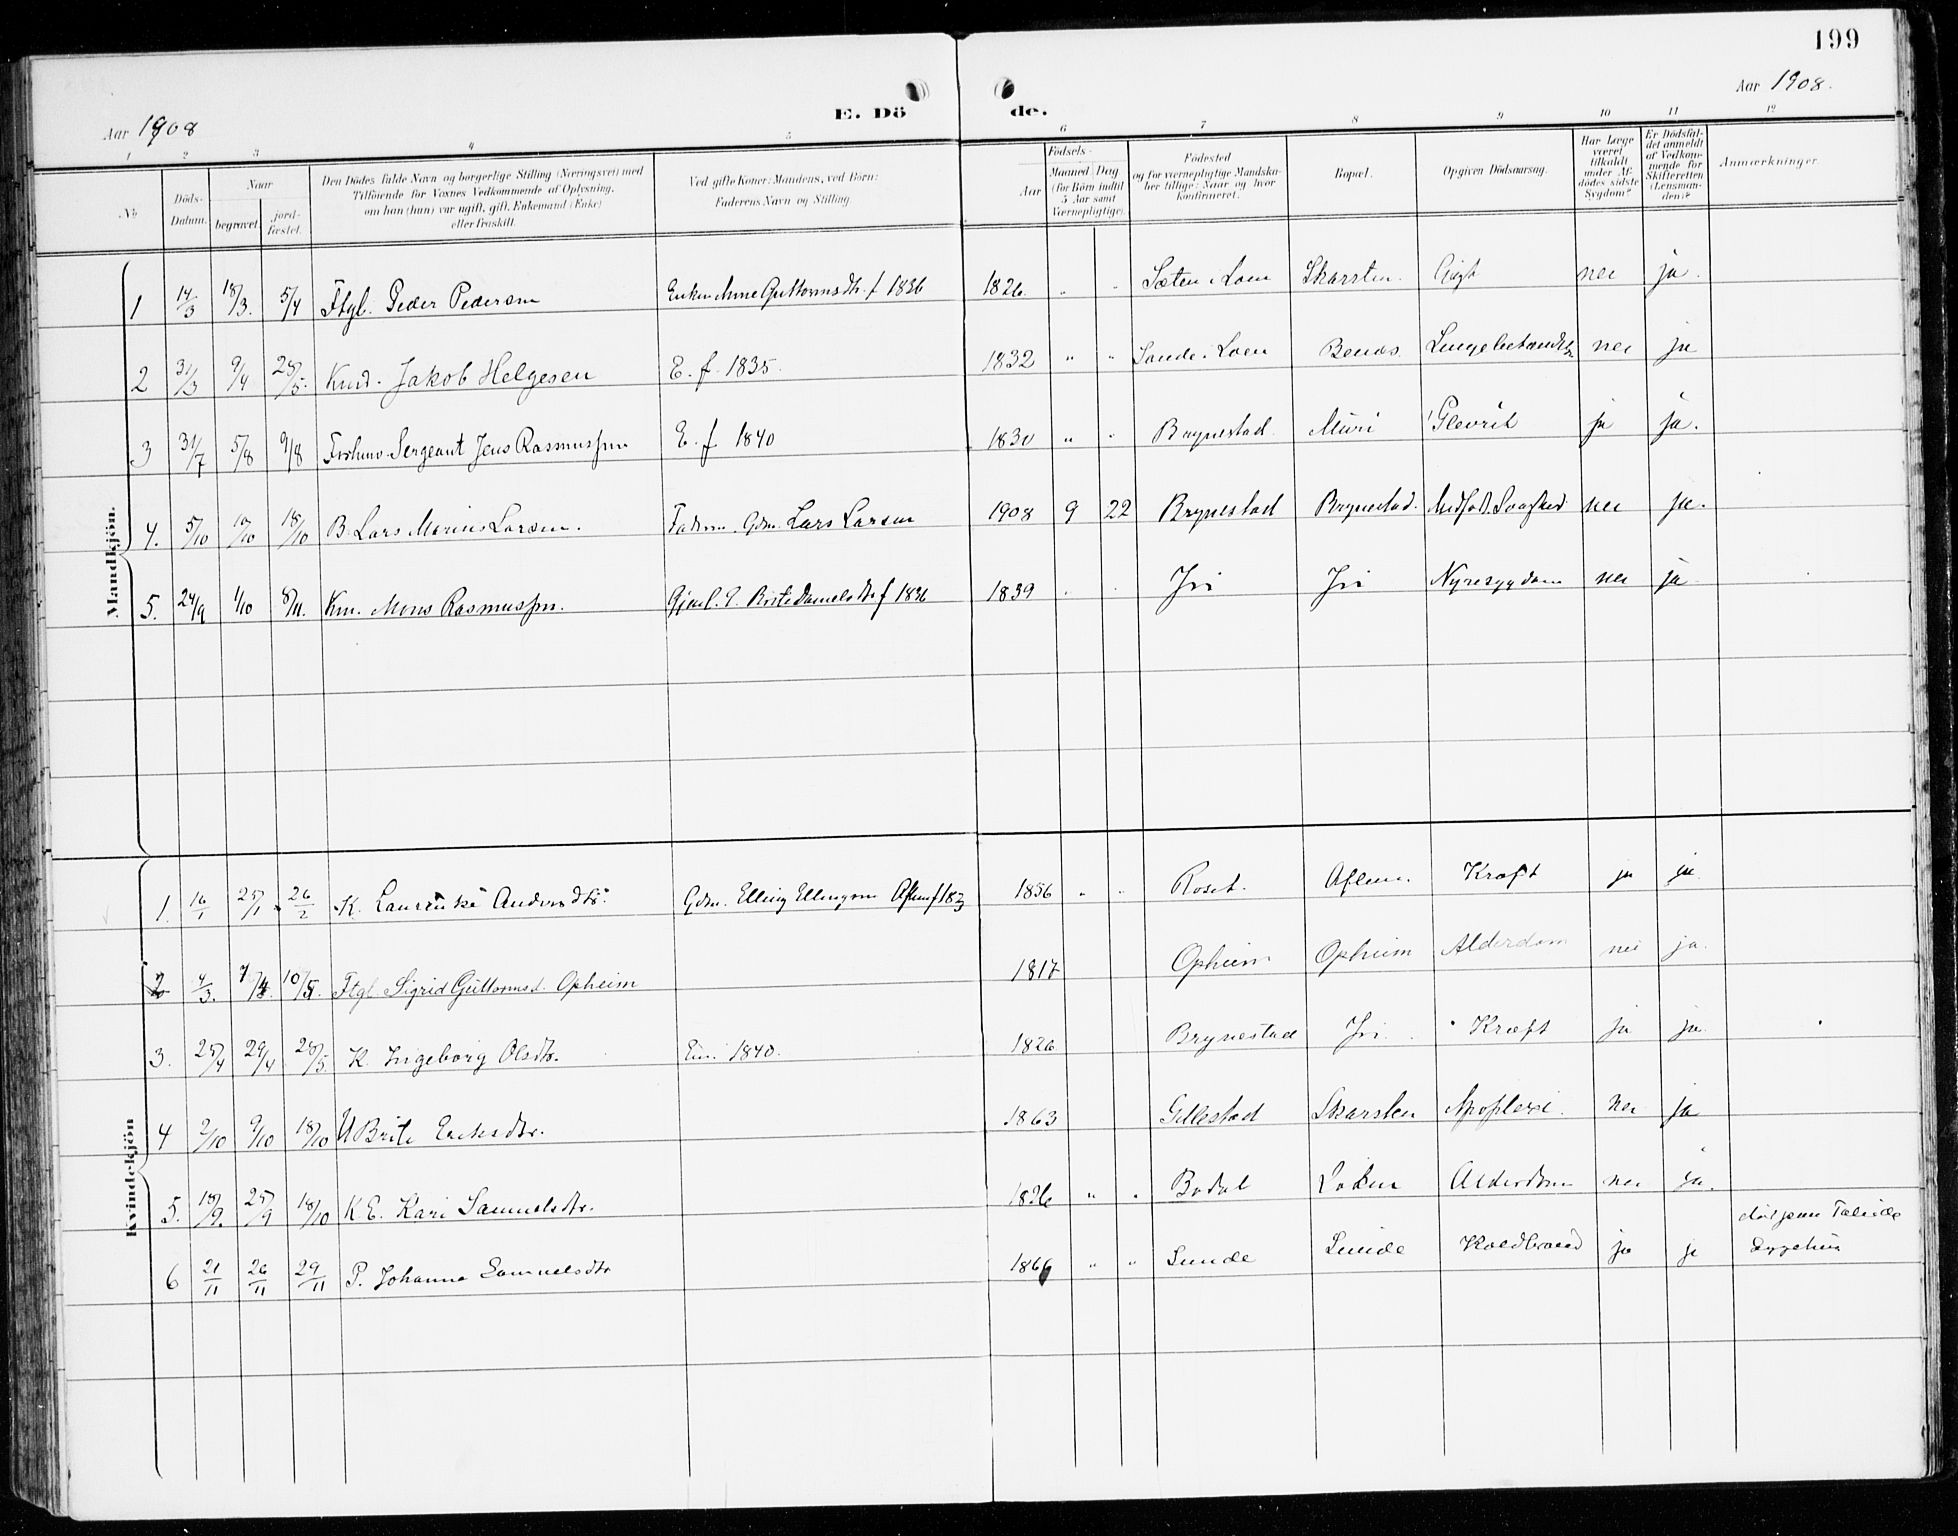 199
Aar 1908
E. Dö de.
Aar 1908.
1 2 3 4 5 6 7 8 9 10 11 12
No
Döds-Datum.
Naar begravet. jordfæstet.
Den Dödes fulde Navn og borgerlige Stilling (Næringsvei) med
Tilföiende for Voxnes Vedkommende af Oplysning,
om han (hun) var ugift, gift, Enkemand (Enke)
eller fraskilt.
Ved gifte Koner: Mandens, ved Börn:
Faderens Navn og Stilling.
Födsels-
Aar Maaned Dag
(for Börn indtil
5 Aar samt
Værnepligtige).
Födested
og for værnepligtige Mandskaber tillige: Naar og hvor
konfirmeret.
Bopæl.
Opgiven Dödsaarsag.
Har Læge været tilkaldt under Afdödes sidste Sygdom?
Er Dödsfaldet anmeldt af Vedkommende for Skifteretten (Lensmanden)?
Anmærkninger.
Mandkjön.
1 14/3 18/3. 5/4 Ftgl. Peder Pedersen Enkem Anne Guttormsdtr. f 1836 1826. " " Sæten i Loen Skarsten. Gigt nei ja.
2 31/3 9/4 28/5. Kmd. Jakob Helgesen E. f. 1835. 1832 " " Sande i Loen Benæs Lungebetændelse nei ja
3 31/7 5/8 9/8 Sergeant Jens Rasmussen E. f 1840 1830 " " Brynestad Muri Plevrit ja ja.
4. 5/10 10/10 18/10 B. Lars Marius Larsen. Faderen Gdm. Lars Larsen 1908 9 22 Brynestad Brynestad. Medfødt Svaghed nei ja.
5. 24/9 1/10 8/11. Km. Mons Rasmussen. Gjenl. E. Brite Danielsdtr f 1836 1839 " " Jri Jri Nyresygdom nei ja
Kvindekjön
1. 16/1 25/1 26/2 K. Laurentse Andersdtr. Gdm. Elling Ellingsen Aflem f 1823 1856 " " Roset. Aflem. Kræft ja ja.
2 4/3. 7/4 10/5. Ftgl. Sigrid Guttormsd. Opheim 1817 Opheim Opheim Alderdom nei ja.
3. 25/4 29/4 28/5. K. Ingeborg Olsdtr. Em. 1840. 1826 Brynestad Jri. Kræft ja ja
4 2/10 9/10 18/10 U Brite Eriksdtr. 1863 Gillestad Skarsten Apoplexi. nei ja
5. 18/9. 25/9 18/10 K. E. Kari Samuelsdtr. 1826 " " Bødal Loen Alderdom nei ja.
6 21/11 26/11 29/11 P. Johanne Samuelsdtr 1866 " " Sunde Sunde Koldbrand ja ja